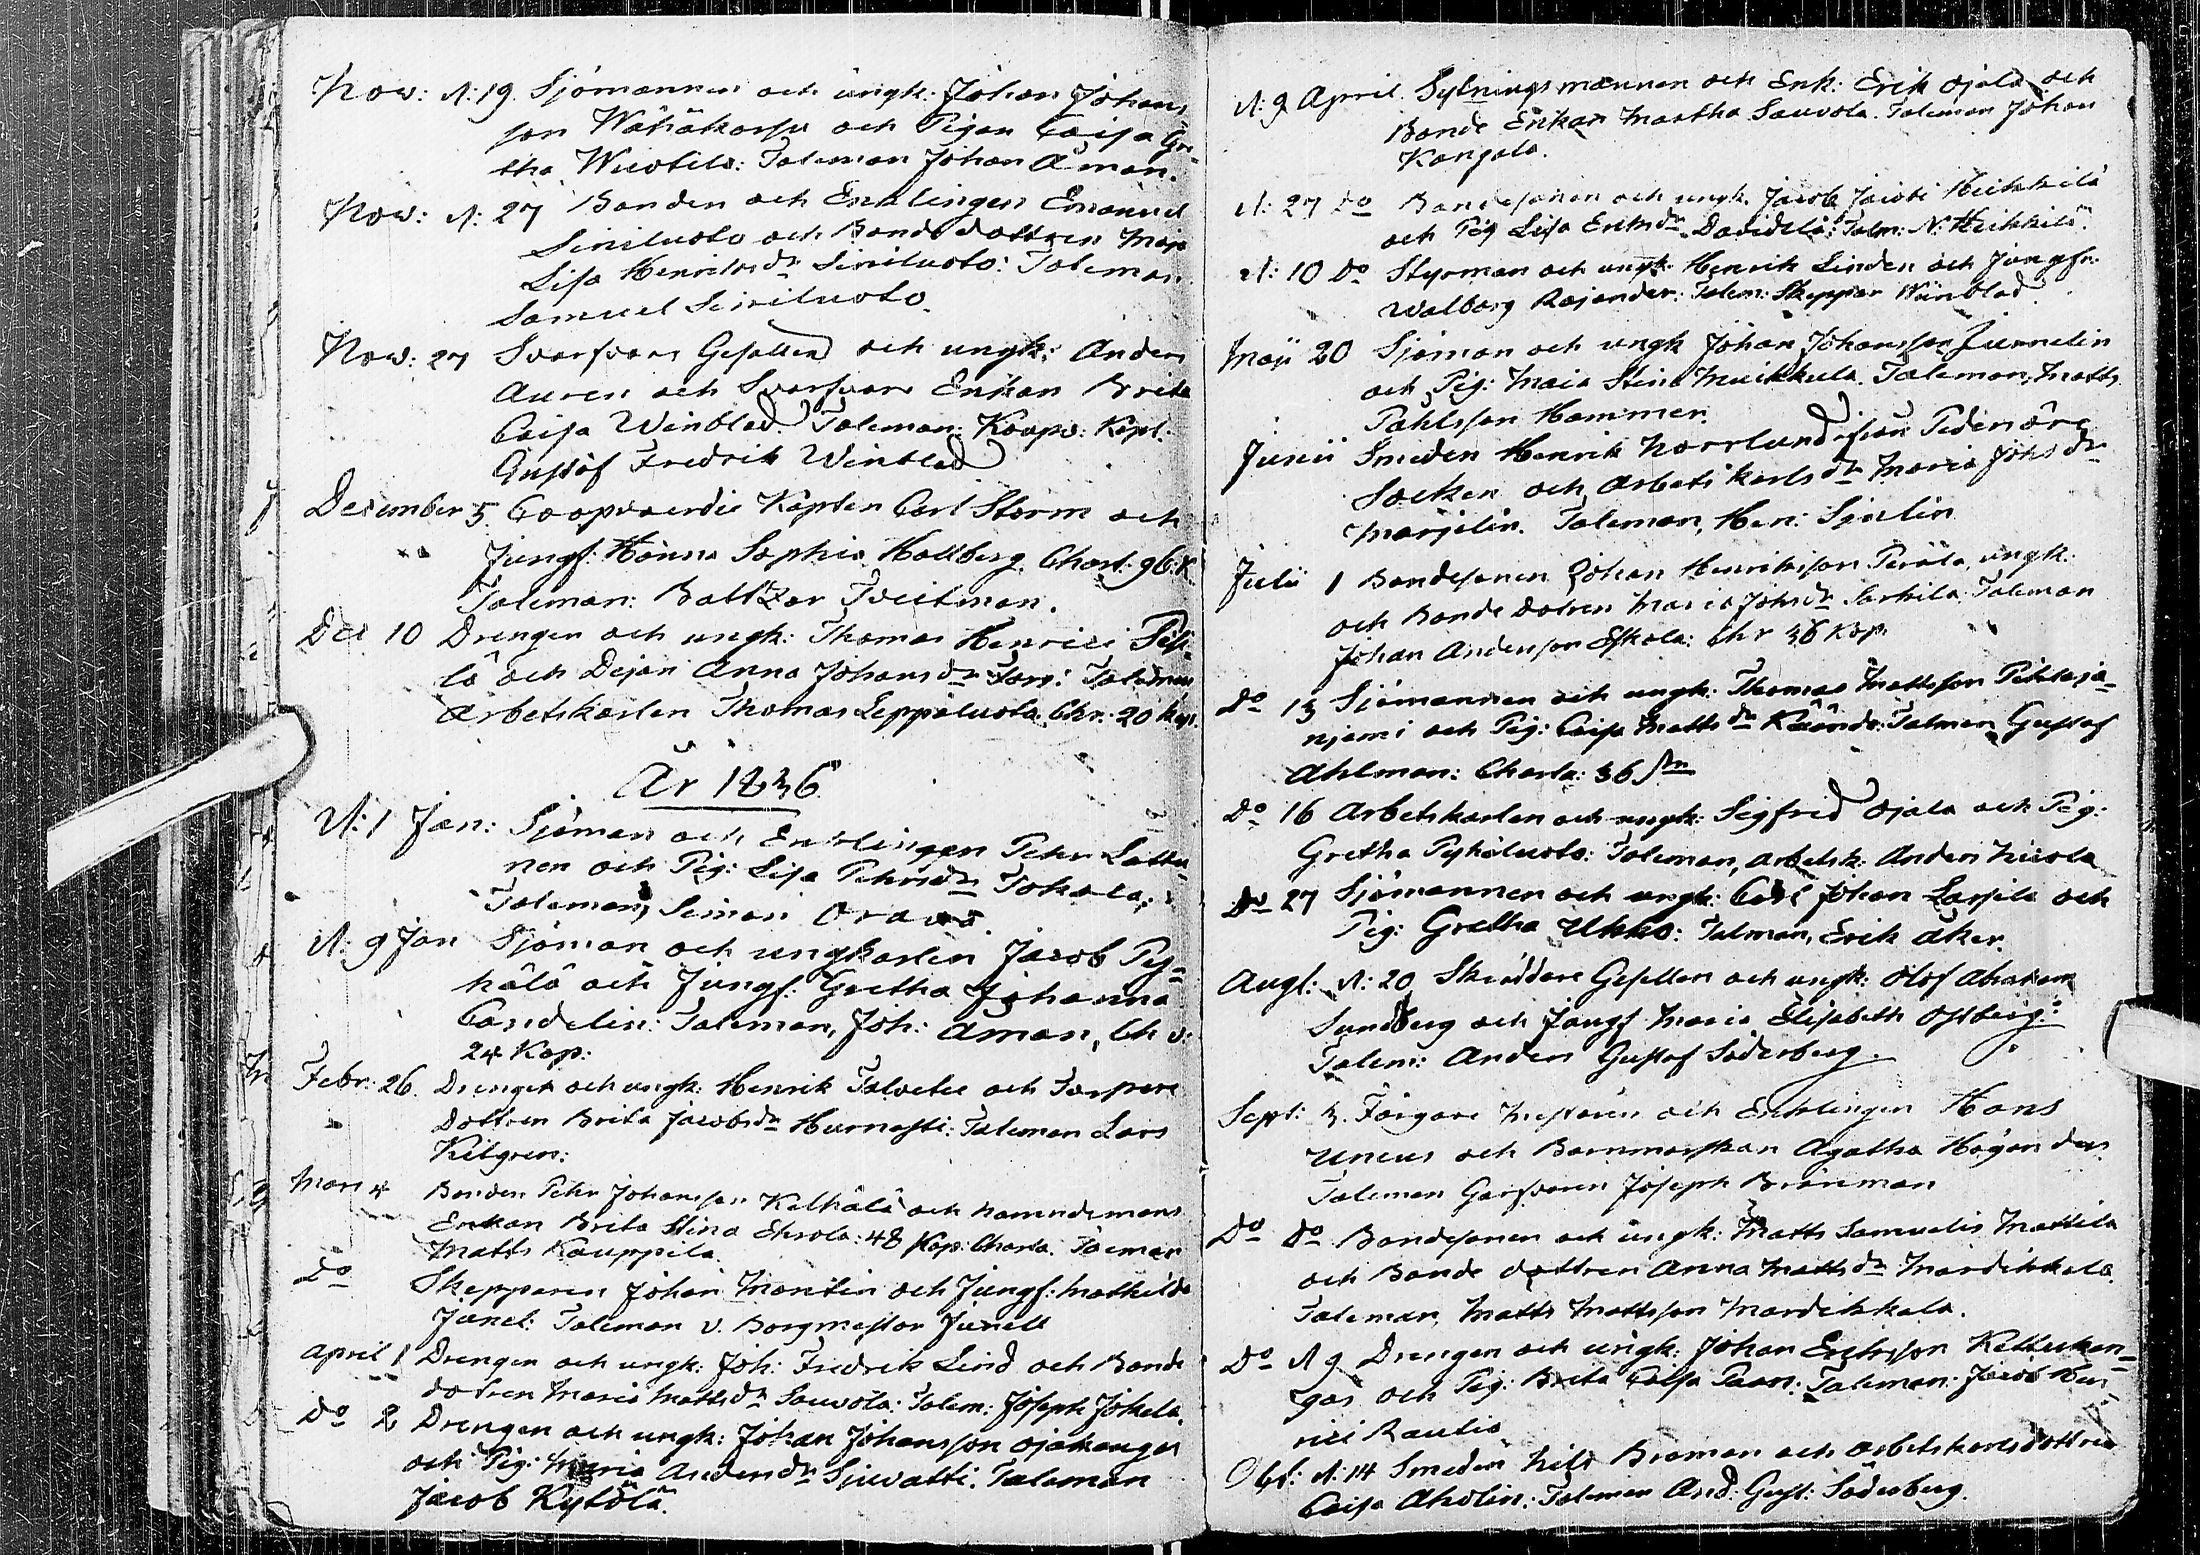 Now: d: 19. Sjömannen och ungk: Johan Johans
son Wähäkorpi och Pigan Caisa Gre-
tha Wuotila: Taleman Johan Åman.
Now: d: 27 Bonden och Enklingen Emanuel
Siniluoto och Bonde dottren Maja
Lisa Henriksdr Siniluoto: Taleman
Samuel Siniluoto.
Now: 27 Svarfvare Gesällen och ungk: Anders
Auren och Svarfvare Enkan Brita
Caisa Winblad. Taleman: Koopv: Kapt.
Gustof Fredrik Winblad
December 5. Coopvaerdie Kapten Carl Storm och
Jungf: Hanna Sophia Hallberg. Chart: 96 K.
Taleman: Baltzar Tveitman.
Dec 10 Drengen och ungk: Thomas Henrici
lä och Dejan Anna Johansdr Taleman
Arbetskarlen Thomas Leppäluoto. Chr: 20 kop.
År 1836
d: 1 Jan: Sjöman och Enklingen Pehr Lattu-
nen och Pig: Lisa Pehrsdr Tokola:
Taleman, Simon
d: 9 Jan Sjöman och ungkarlen Jacob Py-
hälä och Jungf: Gretha Johanna
Candelin: Taleman, Joh: Åman, Ch v:
24 Kop:
Febr: 26. Drengen och ungk: Henrik Talvetie och Torpare
Dottren Brita Jacobsdr Hurnasti: Taleman Lars
Kitgren:
Mars 4 Bonden Pehr Johansson Kelhälä och nämndemans
Enkan Brita Stina Ehrola: 48 Kop: Charta. Taleman
Matts Kauppila
Do Skepparen Johan Montin och Jungf: Mathilda
Junel: Taleman v. Borgmestar Junell
April 1 Drengen och ungk: Joh: Fredrik Lind och Bonde
dotren Maria Mattsdr Sauvola: Talem: Joseph Jokela.
Do 2 Drengen och ungk: Johan Johansson Ojakangas
och Pig: Maria Andersdr Siuvatti. Taleman
Jacob Kytölä.
d: 9 April. Sylningsmannen och Enk: Erik Ojala och
Bonde Enkan Martha Sauvola. Taleman Johan
Kangala.
d: 27 Do Bondesonen och ungk. Jacob Jacobi Heikkilä
och Pig Lisa Eriksdr Davidila: Talm: N: Heikkilä.
d: 10 Do Styrman och ungk: Henrik Linden och Jungfr.
Walborg Rajander: Talem: Skeppar Winblad.
Maji 20 Sjöman och ungk Johan Johansson Junnelin
och Pig: Maia Stina Muikkula. Taleman, Matts
Pahlsson Hammer.
Junii Smeden Henrik Norrlund ifrån Pedersöre
Socken och Arbets karls dr Maria Johsdr
Marjelin. Taleman, Hen: Sjulin
Julii 1 Bondesonen Johan Henriksson Perälä, ungk:
och Bonde Dotren Maria Johsdr Sarkila. Taleman
Johan Andersson Eskola: Chr 36 Kop.
Do 13 Sjömannen och ungk: Thomas Mattsson Pikkaja-
njemi och Pig: Caisa Mattsdr Käändä: Talman Gustaf
Ahlman: Charta: 36
Do 16 Arbetskarlen och ungk: Sigfred Ojala och Pig:
Gretha Pyhäluoto: Taleman, Arbetsk: Anders
Do 27 Sjömannen och ungk: Carl Johan Lassila och
Pig: Gretha Ukko: Talman, Erik Åker.
Augt: d: 20 Skräddare Gesellen och ungk: Olof Abraham
Sundberg och Jungf Maria Elisabeth Ostberg:
Talem: Anders Gustaf Söderberg.
Sept: 3. Färgare Mestaren och Enklingen Hans
Uneus och Barnmorskan Agatha Höganders
Taleman Garfvaren Joseph Brännman
Do Do Bondesonen och ungk: Matts Samuelis Mattila
och Bonde dottren Anna Mattsdr Mardikkala.
Taleman, Matts Mattsson Mardikkala.
Do d 9 Drengen och ungk: Johan Erichsson Kettukan-
gas och Pig: Brita Caisa Paan: Taleman: Jacob Hen-
rici Rautio
Obt: d: 14 Smeden Nils Broman och arbetskarlsdottren
Caisa Aholin: Taleman And: Gust: Söderberg.